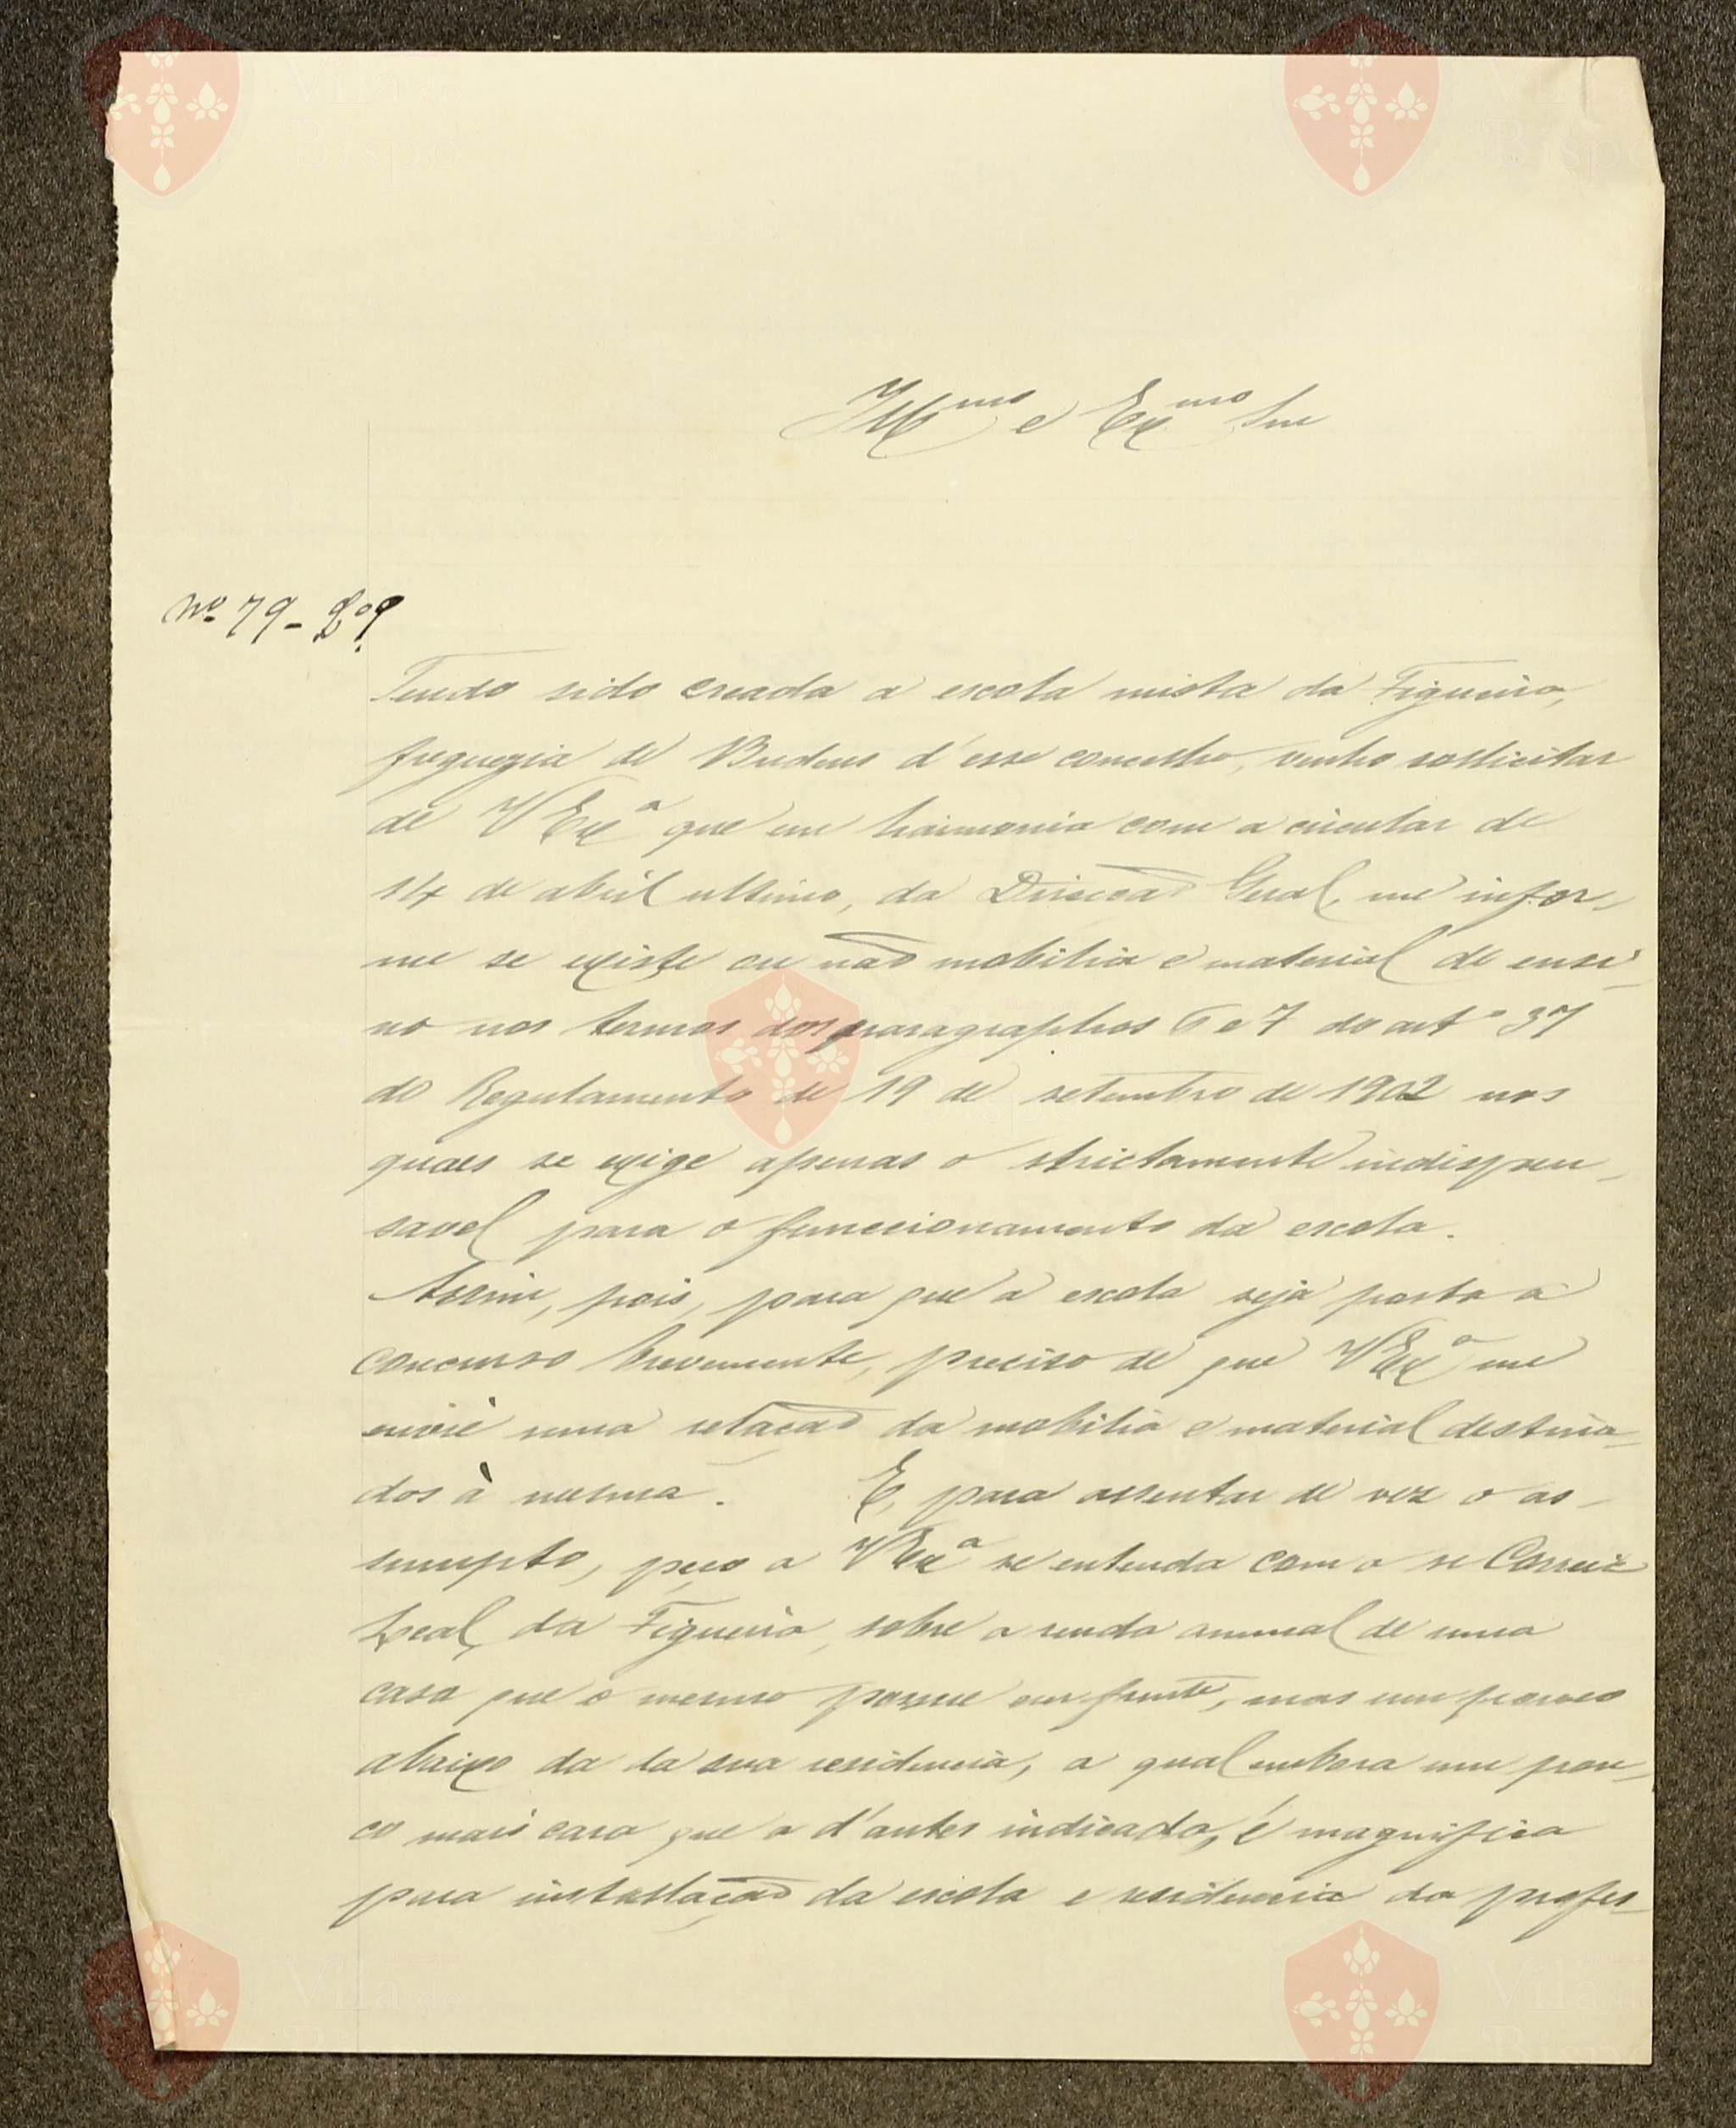 Illmo e Exmo Snr
No 79 - Lo 9
Tendo sido creada a escola mista da Figueira,
freguezia de Budens d'esse concelho, venho sollicitar
de V Exa que em harmonia com a circular de
14 de abril ultimo, da Direcção Geral, me infor-
me se existe ou não mobilia e material de ensi-
no nos termos dos paragraphos 6 e 7 do arto 37
do Regulamento de 19 de setembro de 1902 nos
quaes se exige apenas o strictamente indispen-
savel para o funccionamento da escola.
Assim, pois, para que a escola seja posta a
concurso brevemente, preciso de que V Exa me
envie uma relação da mobilia e material destina-
dos à mesma. E, para assentar de vez o as-
sumpto, peço a V Exa se entenda com o sr Correia
Leal, da Figueira, sobre a renda annual de uma
casa que o mesmo possue em frente, mas um pouco
abaixo da da sua residencia, a qual embora um pou-
co mais cara que a d'antes indicada, é magnifica
para installação da escola e residencia da profes-
Vila
Bispo